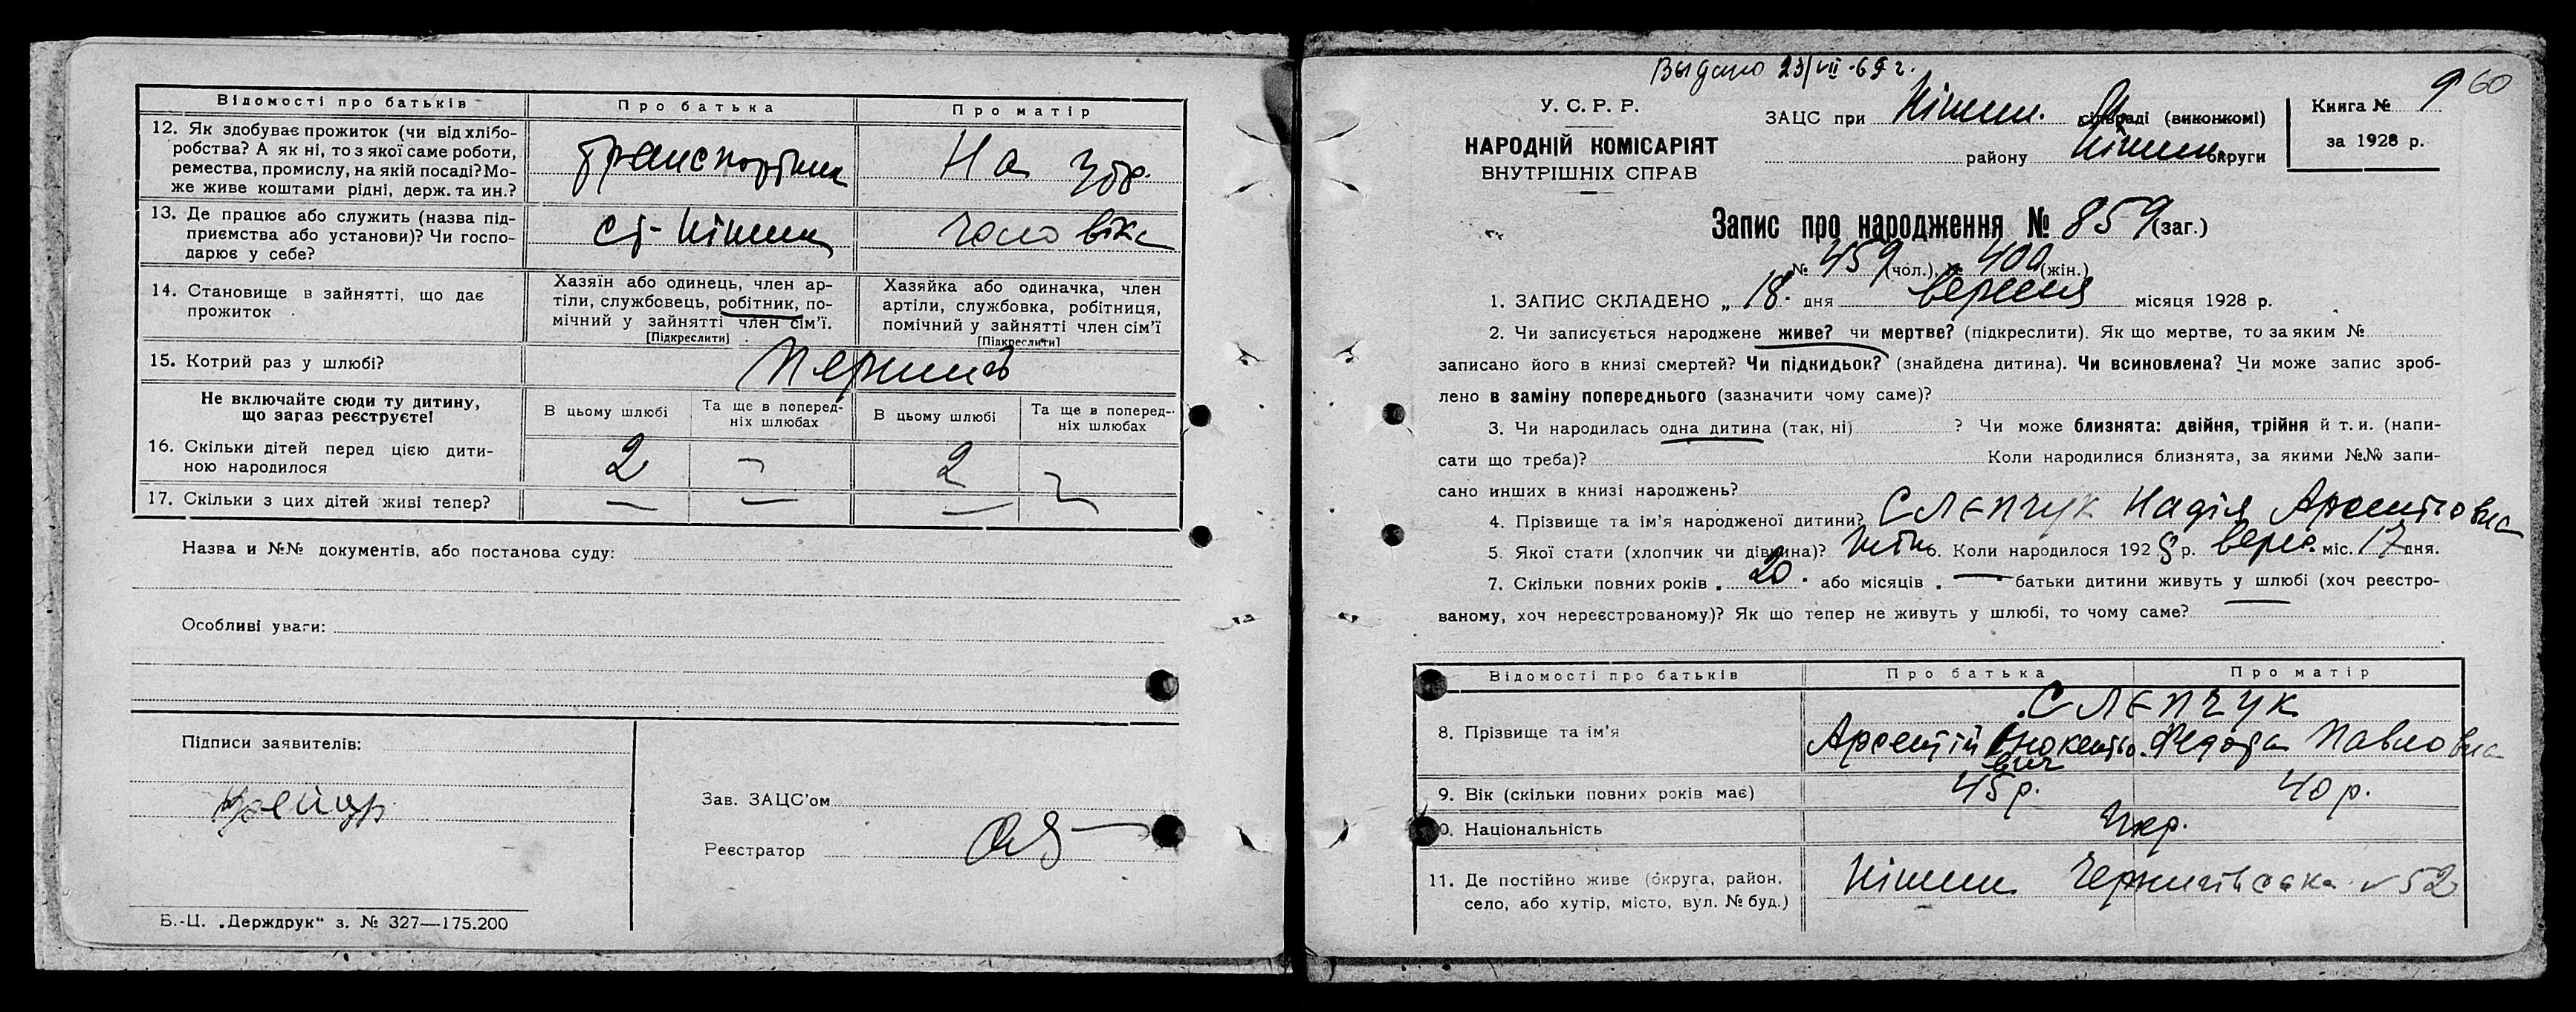 Відомості про батьків Про батька Про матір
12. Як здобуває прожиток (чи від хлібо-
робства? А як ні, то з якої саме роботи,
ремества, промислу, на якій посаді? Мо-
же живе коштами рідні, держ. та ин.?
транспортник На утр.
13. Де працює або служить (назва під-
приємства або установи)? Чи госпо-
дарює у себе?
ст- Ніжин чоловіка
14. Становище в зайнятті, що дає
прожиток
Хазяїн або одинець, член ар-
тіли, службовець, робітник, по-
мічний у зайнятті член сім'ї.
[Підкреслити]
Хазяйка або одиначка, член
артіли, службовка, робітниця,
помічний у зайнятті член сім'ї
[Підкреслити]
15. Котрий раз у шлюбі? Перший
Не включайте сюди ту дитину,
що загаз реєструєте!
В цьому шлюбі Та ще в поперед-
ніх шлюбах В цьому шлюбі Та ще в поперед-
ніх шлюбах
16. Скільки дітей перед цією дити-
ною народилося
2 — 2 —
17. Скільки з цих дітей живі тепер? — — — —
Назва и №№ документів, або постанова суду:
Особливі уваги:
Підписи заявителів:
Зав. ЗАЦС'ом
Реєстратор
Б.-Ц. „Держдрук“ з. № 327—175.200
Выдано 23/VII-69 г.
У. С. Р. Р.
НАРОДНІЙ КОМІСАРІЯТ
ВНУТРІШНІХ СПРАВ
ЗАЦС при Ніжин. сільраді (виконкомі)
району Ніжинськ округи
Книга № 9 60
за 1928 р.
Запис про народження № 859 (заг.)
№ 459 (чол.), № 400 (жін.)
1. ЗАПИС СКЛАДЕНО „ 18. дня вересня місяця 1928 р.
2. Чи записується народжене живе? чи мертве? (підкреслити). Як що мертве, то за яким №
записано його в книзі смертей? Чи підкидьок? (знайдена дитина). Чи всиновлена? Чи може запис зроб-
лено в заміну попереднього (зазначити чому саме)?
3. Чи народилась одна дитина (так, ні) ? Чи може близнята: двійня, трійня й т. и. (напи-
сати що треба)? Коли народилися близнята, за якими №№ запи-
сано инших в книзі народжень?
4. Прізвище та ім'я народженої дитини? Слєпчук Надія Арсентіовна
5. Якої стати (хлопчик чи дівчина)? Жін 6. Коли народилося 1928 р. верес. міс. 17 дня.
7. Скільки повних років 20 або місяців — батьки дитини живуть у шлюбі (хоч реєстро-
ваному, хоч нереєстрованому)? Як що тепер не живуть у шлюбі, то чому саме?
Відомості про батьків Про батька Про матір
8. Прізвище та ім'я
Слєпчук
Арсентій Інокентьо-
вич
Федора Павловна
9. Вік (скільки повних років має) 45 р. 40 р.
10. Національність Укр.
11. Де постійно живе (округа, район,
село, або хутір, місто, вул. № буд.)
Ніжин Чернигівська 52